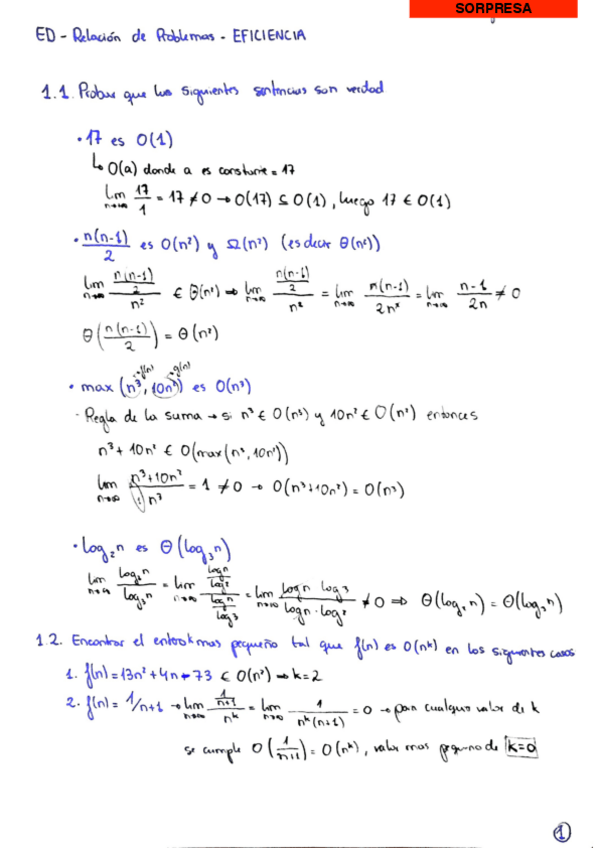 SORPRESA
ED - Relación de Problemas - EFICIENCIA
1.1. Probar que las siguientes sentencias son verdad
• 17 es O(1)
↳ O(a) donde a es constante = 17
lim n→∞ 17/1 = 17 ≠ 0 → O(17) ⊆ O(1), luego 17 ∈ O(1)
• n(n-1)/2 es O(n²) y Ω(n²) (es decir Θ(n²))
lim n→∞ (n(n-1)/2)/n² ∈ Θ(n²) ⇒ lim n→∞ (n(n-1)/2)/n² = lim n→∞ n(n-1)/2n² = lim n→∞ n-1/2n ≠ 0
Θ(n(n-1)/2) = Θ(n²)
→f(n) →g(n)
• max (n³, 10n²) es O(n³)
- Regla de la suma → si n³ ∈ O(n³) y 10n² ∈ O(n²) entonces
n³ + 10n² ∈ O(max(n³, 10n²))
lim n→∞ n³+10n²/n³ = 1 ≠ 0 → O(n³+10n²) = O(n³)
• log₂n es Θ(log₃n)
lim n→∞ log₂n/log₃n = lim n→∞ (logn/log2)/(logn/log3) = lim n→∞ logn log3/logn·log2 ≠ 0 ⇒ Θ(log₂n) = Θ(log₃n)
1.2. Encontrar el entero k mas pequeño tal que f(n) es O(nᵏ) en los siguientes casos
1. f(n) = 13n² + 4n - 73 ∈ O(n²) → k=2
2. f(n) = 1/n+1 → lim n→∞ (1/n+1)/nᵏ = lim n→∞ 1/nᵏ(n+1) = 0 → para cualquier valor de k
se cumple O(1/n+1) = O(nᵏ), valor mas pequeño de k=0
1